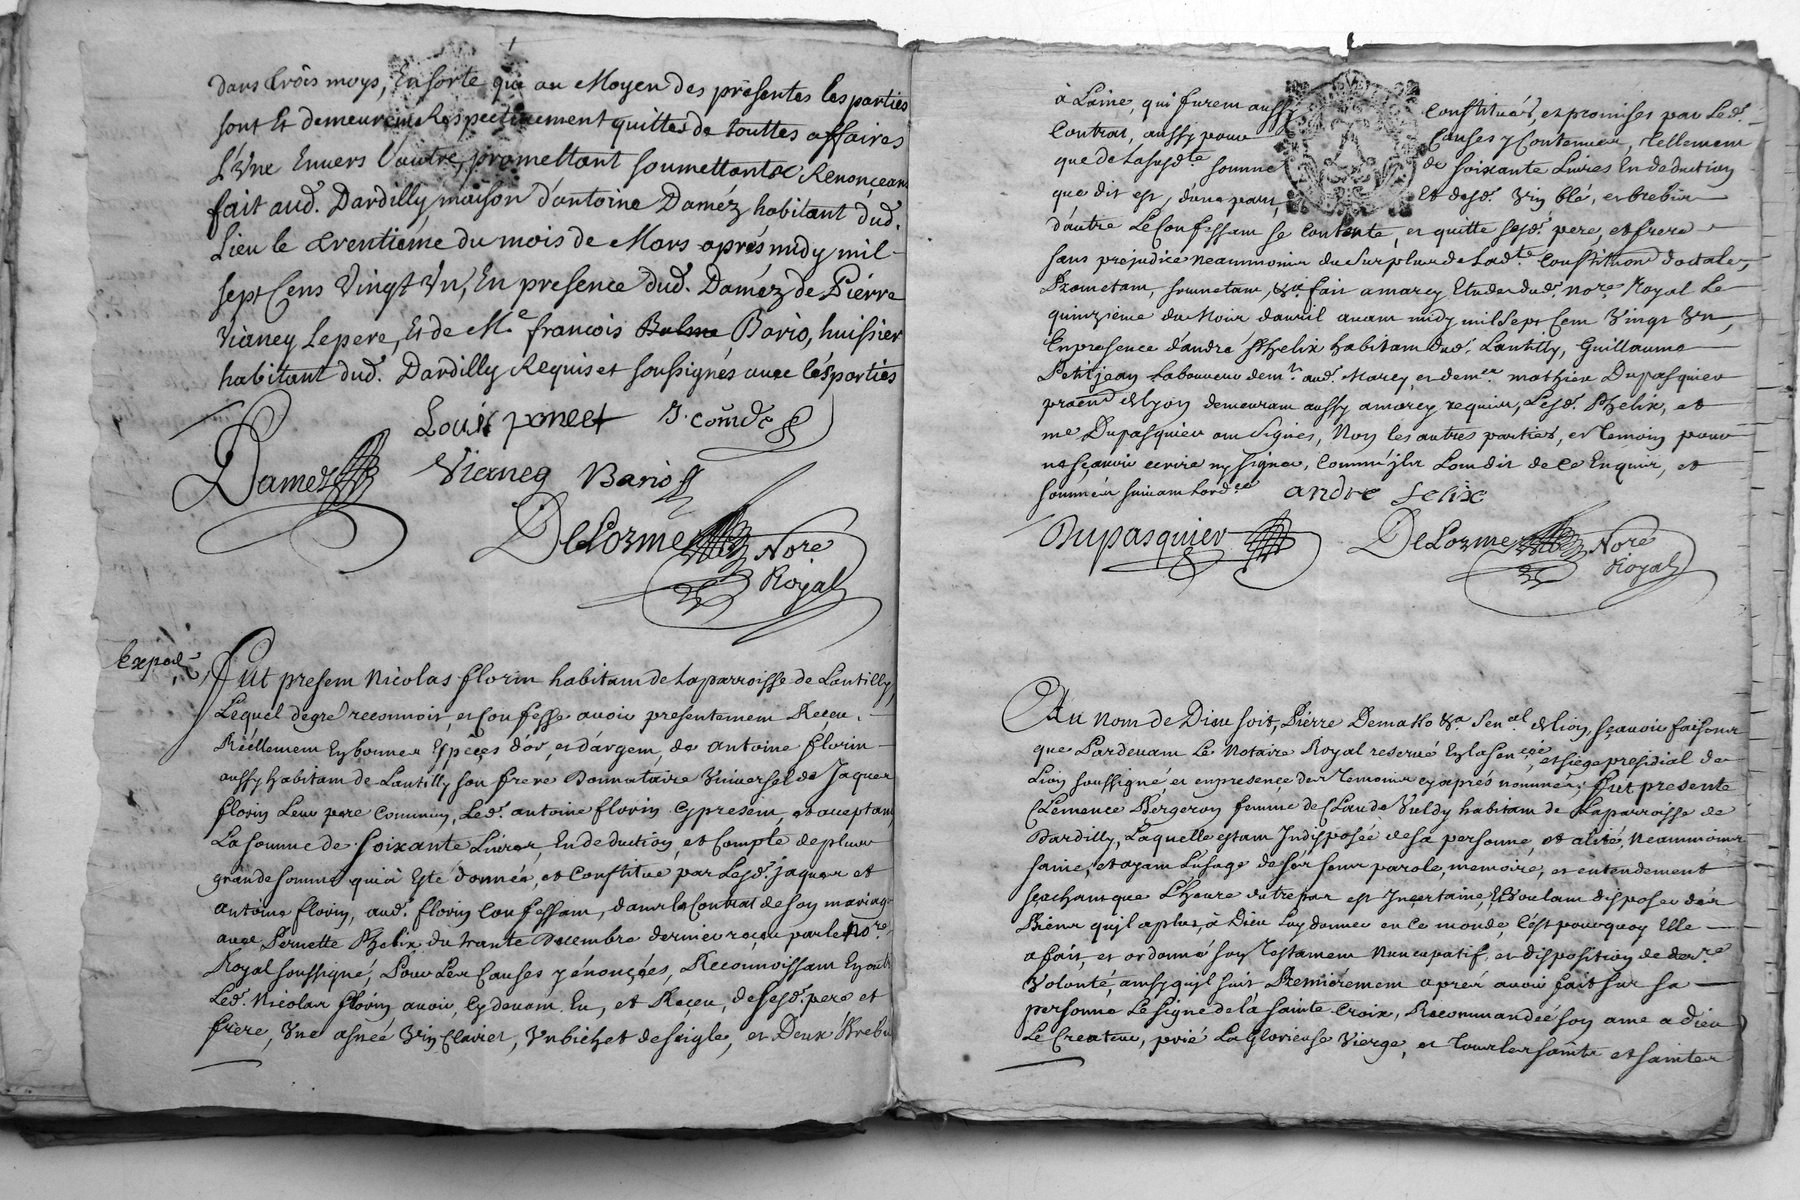 dans trois moys, En sorte que au Moyen des présentes les parties
sont Et demeurent Respectivement quittes de touttes affaires
l'Une Envers l'autre, promettant soumettant &c Renonceant
fait aud. Dardilly maison d'antoine Daméz habitant dud.
Lieu le trentiéme du mois de Mars aprés midy mil
sept Cens Vingt Un, En presence dud. Daméz de Pierre
Vianey le pere, Et de Me francois Bario, huissier
habitant dud. Dardilly Requis et soussignés avec les parties
Louis poncet J. Comde
Damez Vianey Bario
DeLorme Nore
Royal
Expede
Fut presem Nicolas florin habitam de la parroisse de Lantilly,
Lequel degré reconnoit, et confesse avoir presentemem Receu
Réellemem En bonnes Espéçes d'or, et d'argem, de antoine florin
aussy habitam de Lantilly, son frere Donnataire Universel de Jaques
florin Leur pere Commun, Led. antoine florin cy presem, et acceptam,
La somme de soixante Livres, En deduction, et Compte de plus
grande somme qui à Esté donnéé, et Constitue par Lesd. jaques et
antoine florin, aud. florin Confessam, dans le Contrat de son mariage
avec Pernette Phelix du trante Decembre dernier reçeu par le No.re
Royal soussigné, Pour Les Causes y énonçées, Reconnoissam En outre
Led. Nicolas florin avoir, Cy devam Eu, et Reçeu, de sesd. pere et
frere, Une asnéé Vin Clairet, Un bichet de seigle, et Deux Brebis
à Laine, qui furem aussy Constitués, et promises par Led.
Contrat, aussy pour Causes y Contenues, tellement
que de la susd.te somme de soixante Livres En deduction
que dit est, d'une part, Et desd. Vin blé, et brebis
d'autre Le Confessam se Contente, et quitte sesd. pere, et frere
sans prejudice neammoins du surplus de Lad.te Constitution dotale,
Prometam, soumetam, &c fait a marcy Etude dud. no.re Royal Le
quinzieme du Mois davril avam midy mil Sept Cem Vingt Un,
En presence d'andré Phelix habitam dud. Lantilly, Guillaume
Petitjean Laboureur dem.t aud. Marcy, et de m.re mathieu Dupasquier
praen à Lyon demeuram aussy a marcy requis, Lesd. Phelix, et
me Dupasquier om signés, Non les autres parties, et temoin pour
ne sçavoir ecrire ny signer, Comm'jls Lom dit de ce Enquis, et
sommés suivam Lord.ce andre felix
Dupasquier DeLorme Nore
Royal
Au nom de Dieu soit, Pierre Sen.al de Lion, sçavoir faisons
que Pardevam Le Notaire Royal reservé En la sen.cée et siege presidial de
Lion soussigné, et en presençe des Temoins cy aprés nommés; fut presente
Clemence Bergeron femme de Claude Vuldy habitam de La parroisse de
Dardilly, Laquelle estam Indisposéé de sa personne, et alitéé, neammoins
saine, et ayam L'usage de ses sens parole, memoire, et entendement
sçachant que L'heure du trepas est Incertaine, Et Voulam disposer des
Biens qu'jl a plus, à Dieu Luy donner en ce monde, C'est pourquoy Elle
a fait, et ordonné son Testamem Nuncupatif, et disposition de der.re
Volonté, ainsy qu'jl suit Premiérement aprés avoir fait sur sa
personne Le signe de la Sainte Croix, Recommandéé son ame a Dieu
Le Createur, prié La Glorieuse Vierge, et Tous les saints et saintes